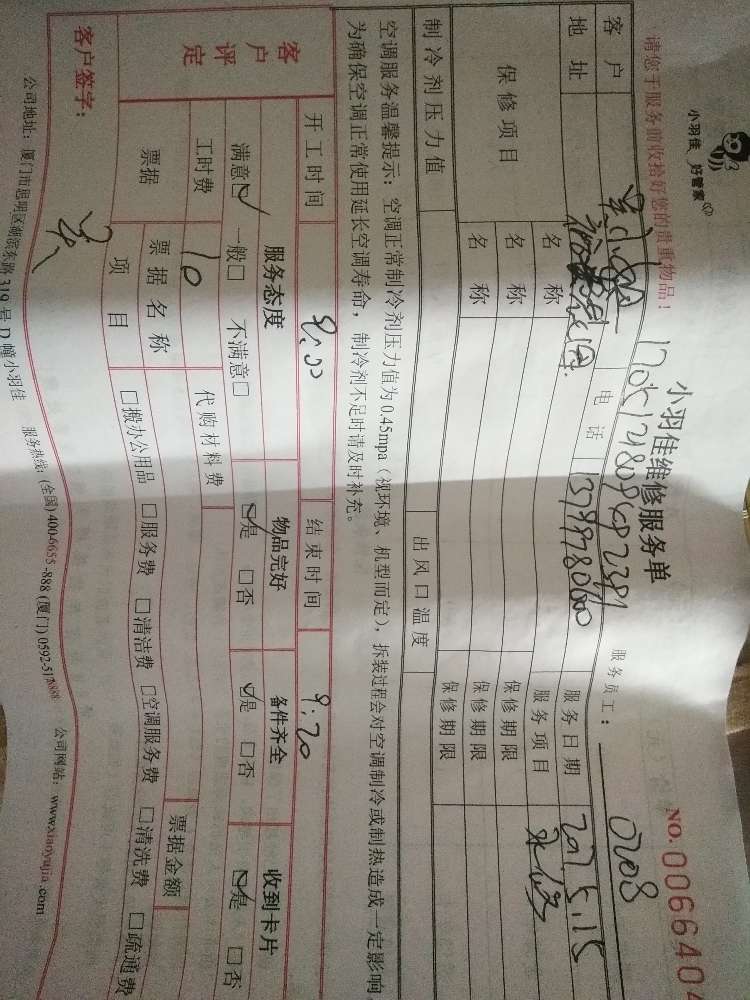 小羽佳 好管家
请您于服务前收拾好您的贵重物品！
小羽佳维修服务单
NO.0066404
服务员工： 0208
客户 电话 服务日期 2017.5.15
地址 服务项目
保修项目 名称 保修期限
名称 保修期限
名称 保修期限
制冷剂压力值 出风口温度
空调服务温馨提示：空调正常制冷剂压力值为0.45mpa（视环境、机型而定），拆装过程会对空调制冷或制热造成一定影响
为确保空调正常使用延长空调寿命，制冷剂不足时请及时补充。
开工时间 9:00 结束时间 9:20
客户评定 服务态度 物品完好 备件齐全 收到卡片
满意☑ 一般□ 不满意□ ☑是 □否 ☑是 □否 ☑是 □否
工时费 10 代购材料费
票据 票据名称 票据金额
项目 □搬办公用品 □服务费 □清洁费 □空调服务费 □清洗费 □疏通费
客户签字：
公司地址：厦门市思明区湖滨东路319号D幢小羽佳 服务热线：(全国)400-6655-888 (厦门)0592-5178888 公司网站：www.xiaoyujia.com